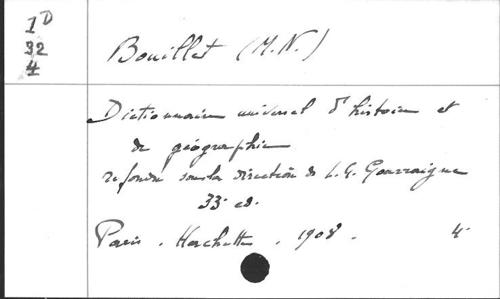 1D
32
4
Bouillet (M.N.)
Dictionnaire universel d'histoire et
de géographie
refondu sous la direction de L.G. Gourraigne
33e ed.
Paris. Hachette. 1908. 4°